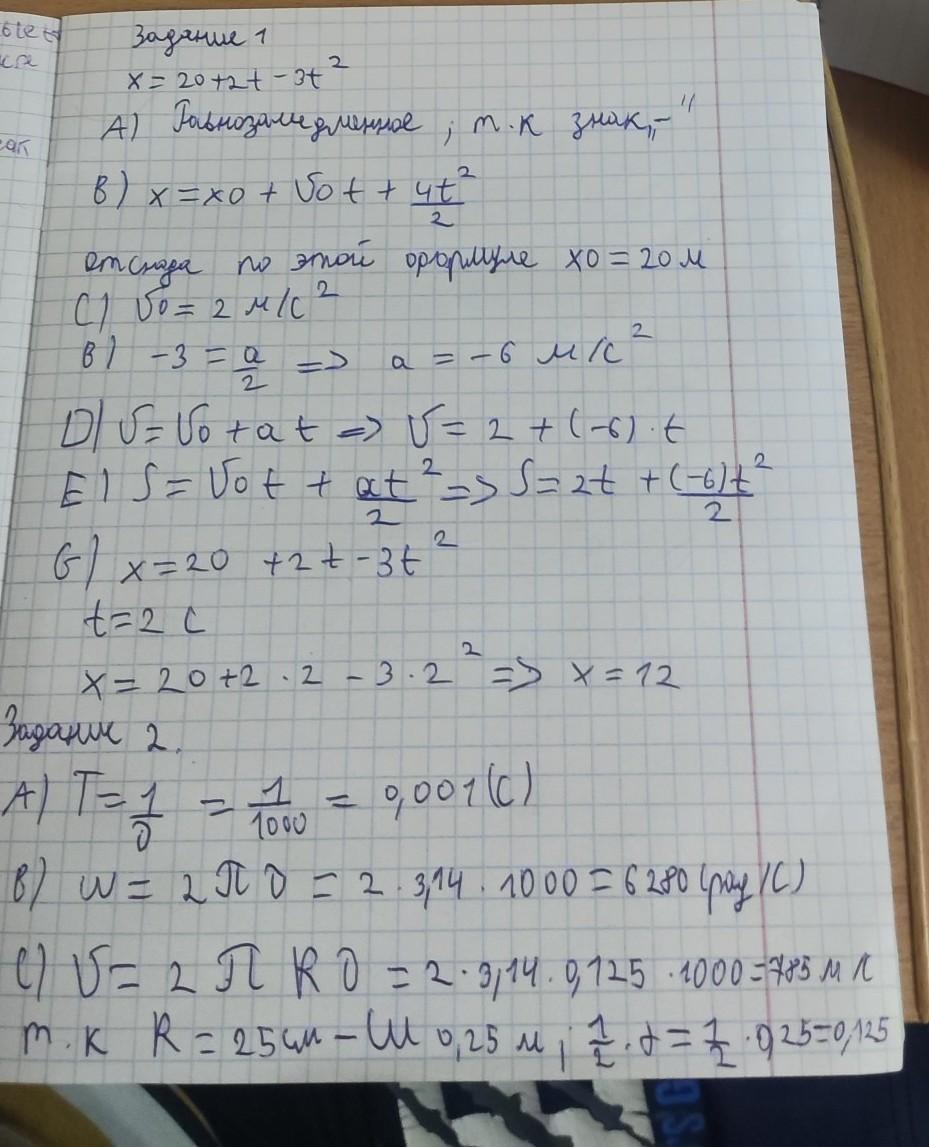 Задание 1
x = 20 + 2t - 3t²
A) Равнозамедленное, т.к знак „-"
B) x = x0 + v0t + 4t²/2
отсюда по этой формуле x0 = 20 м
C) v0 = 2 м/с²
B) -3 = a/2 => a = -6 м/с²
D) v = v0 + at => v = 2 + (-6)·t
E) S = v0t + at²/2 => S = 2t + (-6)t²/2
G) x = 20 + 2t - 3t²
t = 2 c
x = 20 + 2·2 - 3·2² => x = 12
Задание 2.
A) T = 1/υ = 1/1000 = 0,001 (c)
B) w = 2πυ = 2·3,14·1000 = 6280 (рад/с)
C) v = 2πRυ = 2·3,14·0,125·1000 = 785 м
т.к R = 25см - 0,25 м; 1/2·d = 1/2·0,25 = 0,125